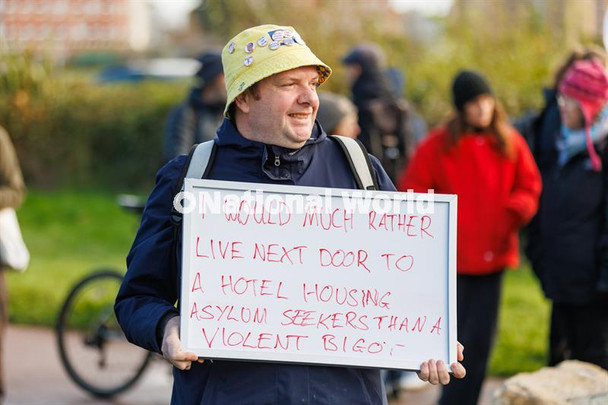 I WOULD MUCH RATHER
LIVE NEXT DOOR TO
A HOTEL HOUSING
ASYLUM SEEKERS THAN A
VIOLENT BIGOT
©National World